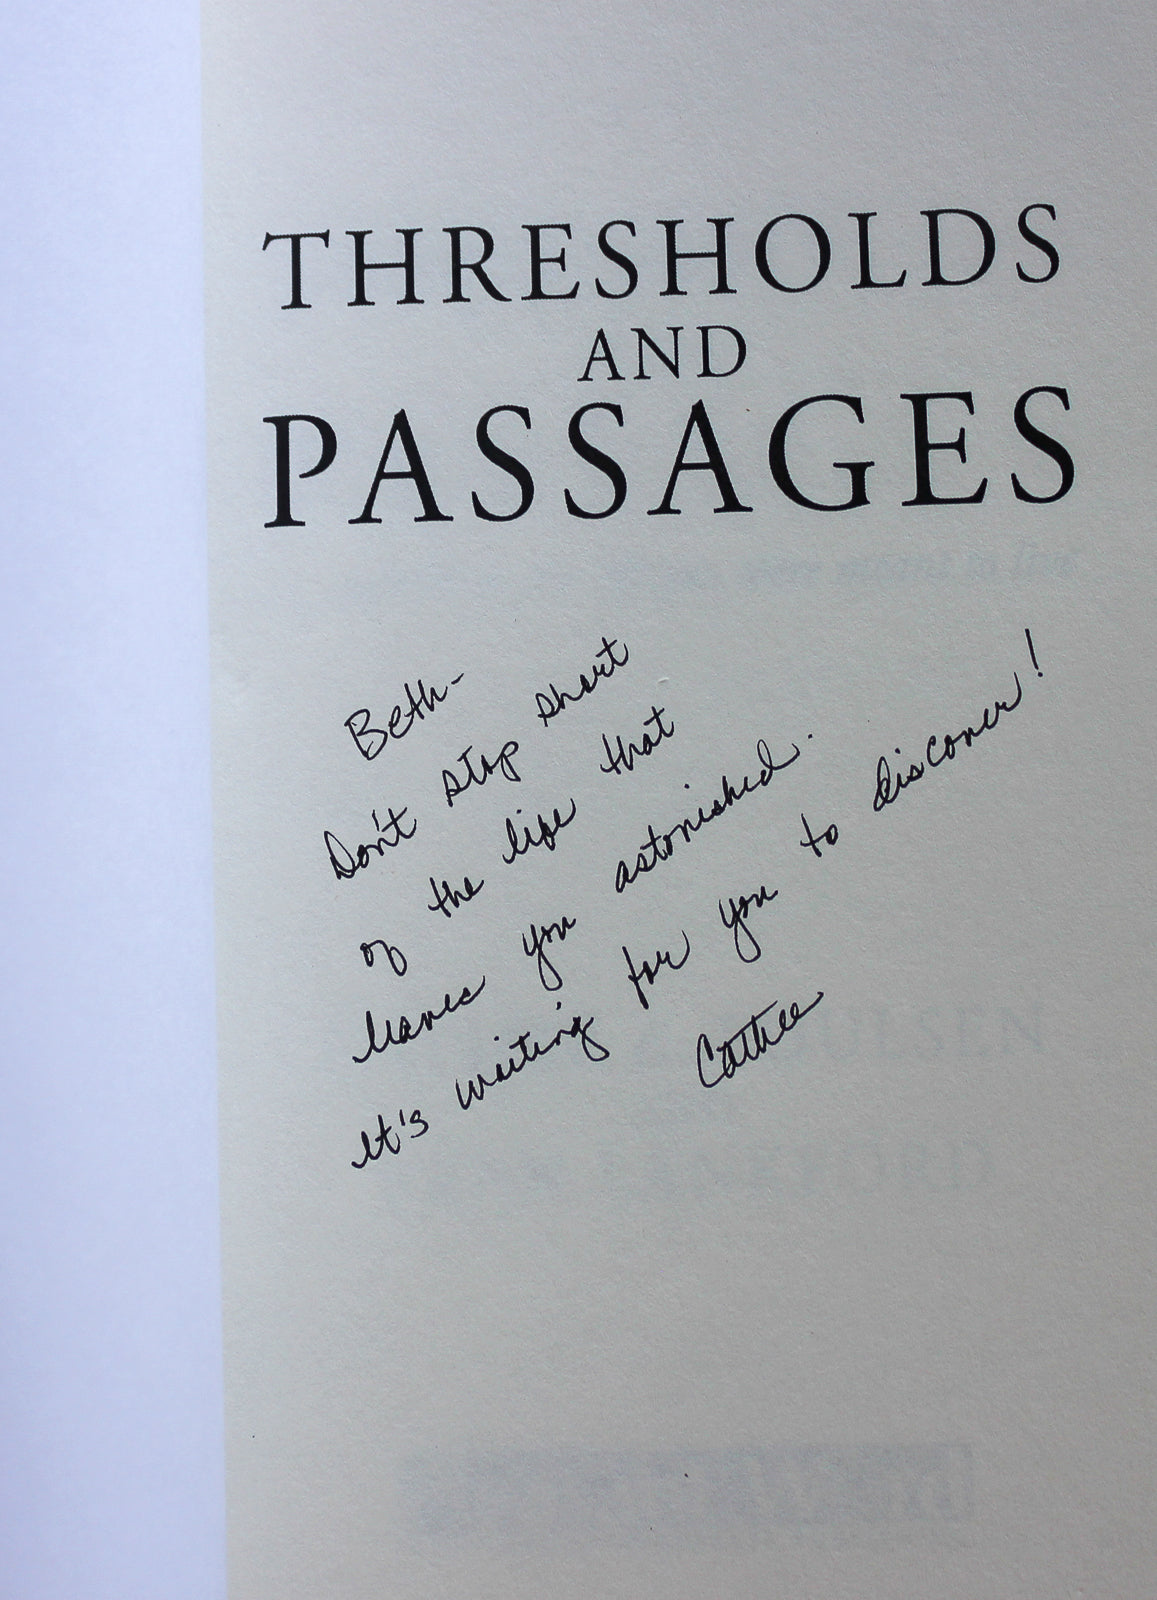 THRESHOLDS
AND
PASSAGES
Beth-
Don't stop short
of the life that
leaves you astonished.
It's waiting for you to discover!
Cathee